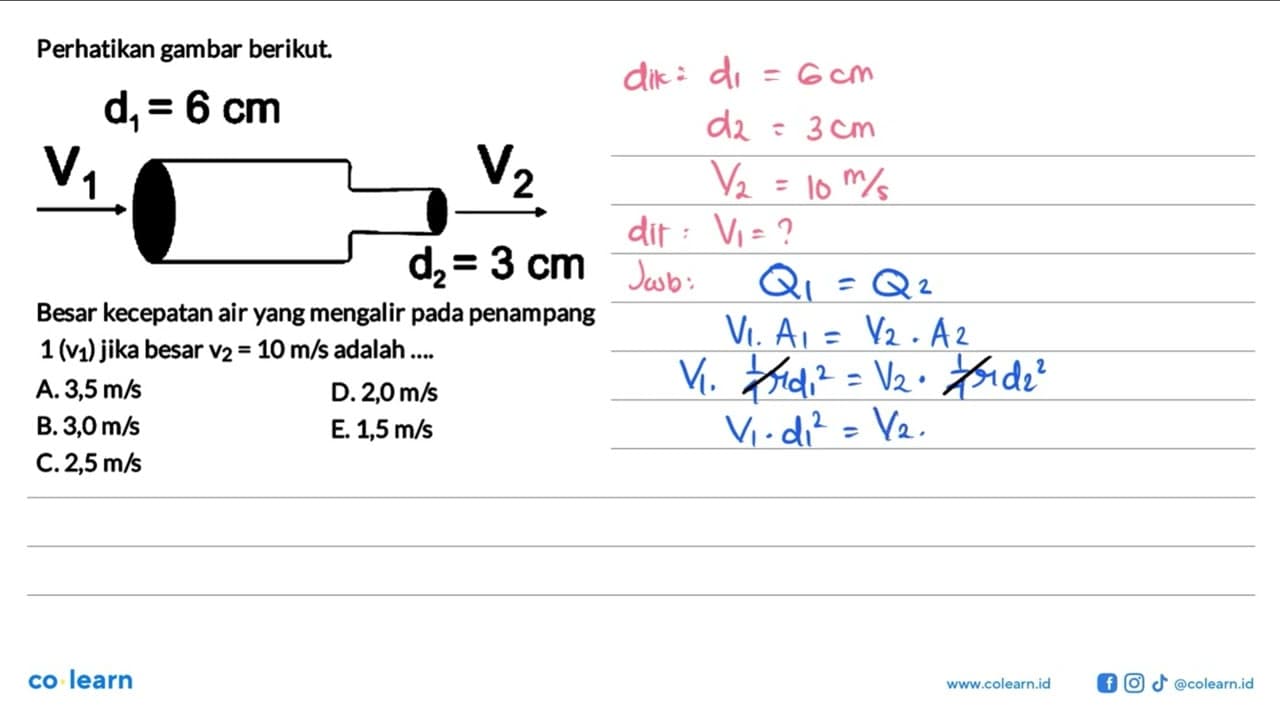 Perhatikan gambar berikut.
d₁ = 6 cm
V₁
V₂
d₂ = 3 cm
Besar kecepatan air yang mengalir pada penampang
1 (v₁) jika besar v₂ = 10 m/s adalah ....
A. 3,5 m/s
D. 2,0 m/s
B. 3,0 m/s
E. 1,5 m/s
C. 2,5 m/s
dik : d₁ = 6 cm
d₂ = 3 cm
V₂ = 10 m/s
dit : V₁ = ?
Jwb :
Q₁ = Q₂
V₁ . A₁ = V₂ . A₂
V₁ . 1/4 π d₁² = V₂ . 1/4 π d₂²
V₁ . d₁² = V₂ .
co learn
www.colearn.id
@colearn.id